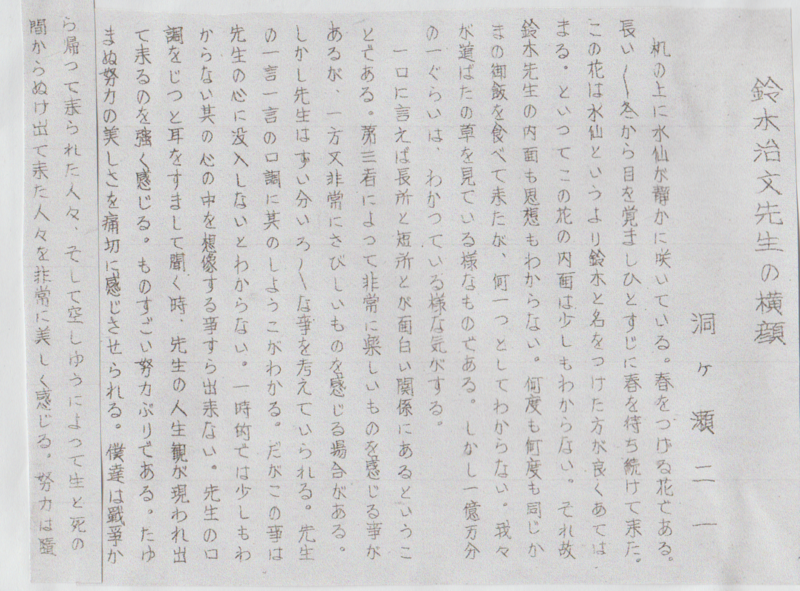 鈴木治文先生の横顔
洞ヶ瀬二一
机の上に水仙が静かに咲いている。春をつげる花である。
長い〳〵冬から目を覚ましひとすじに春を待ち続けて来た。
この花は水仙というより鈴木と名をつけた方が良くあては
まる。といつてこの花の内面は少しもわからない。それ故
鈴木先生の内面も思想もわからない。何度も何度も同じか
まの御飯を食べて来たが、何一つとしてわからない。我々
が道ばたの草を見ている様なものである。しかし一億万分
の一ぐらいは、わかつている様な気がする。
一口に言えば長所と短所とが面白い関係にあるというこ
とである。第三者によつて非常に楽しいものを感じる事が
あるが、一方又非常にさびしいものを感じる場合がある。
しかし先生はずい分いろ〳〵な事を考えていられる。先生
の一言一言の口調に其のしようこがわかる。だがこの事は
先生の心に没入しないとわからない。一時的では少しもわ
からない其の心の中を想像する事すら出来ない。先生の口
調をじつと耳をすまして聞く時、先生の人生観が現われ出
て来るのを強く感じる。ものすごい努力ぶりである。たゆ
まぬ努力の美しさを痛切に感じさせられる。僕達は戦争か
ら帰つて来られた人々、そして空しゆうによつて生と死の
間からぬけ出て来た人々を非常に美しく感じる。努力は